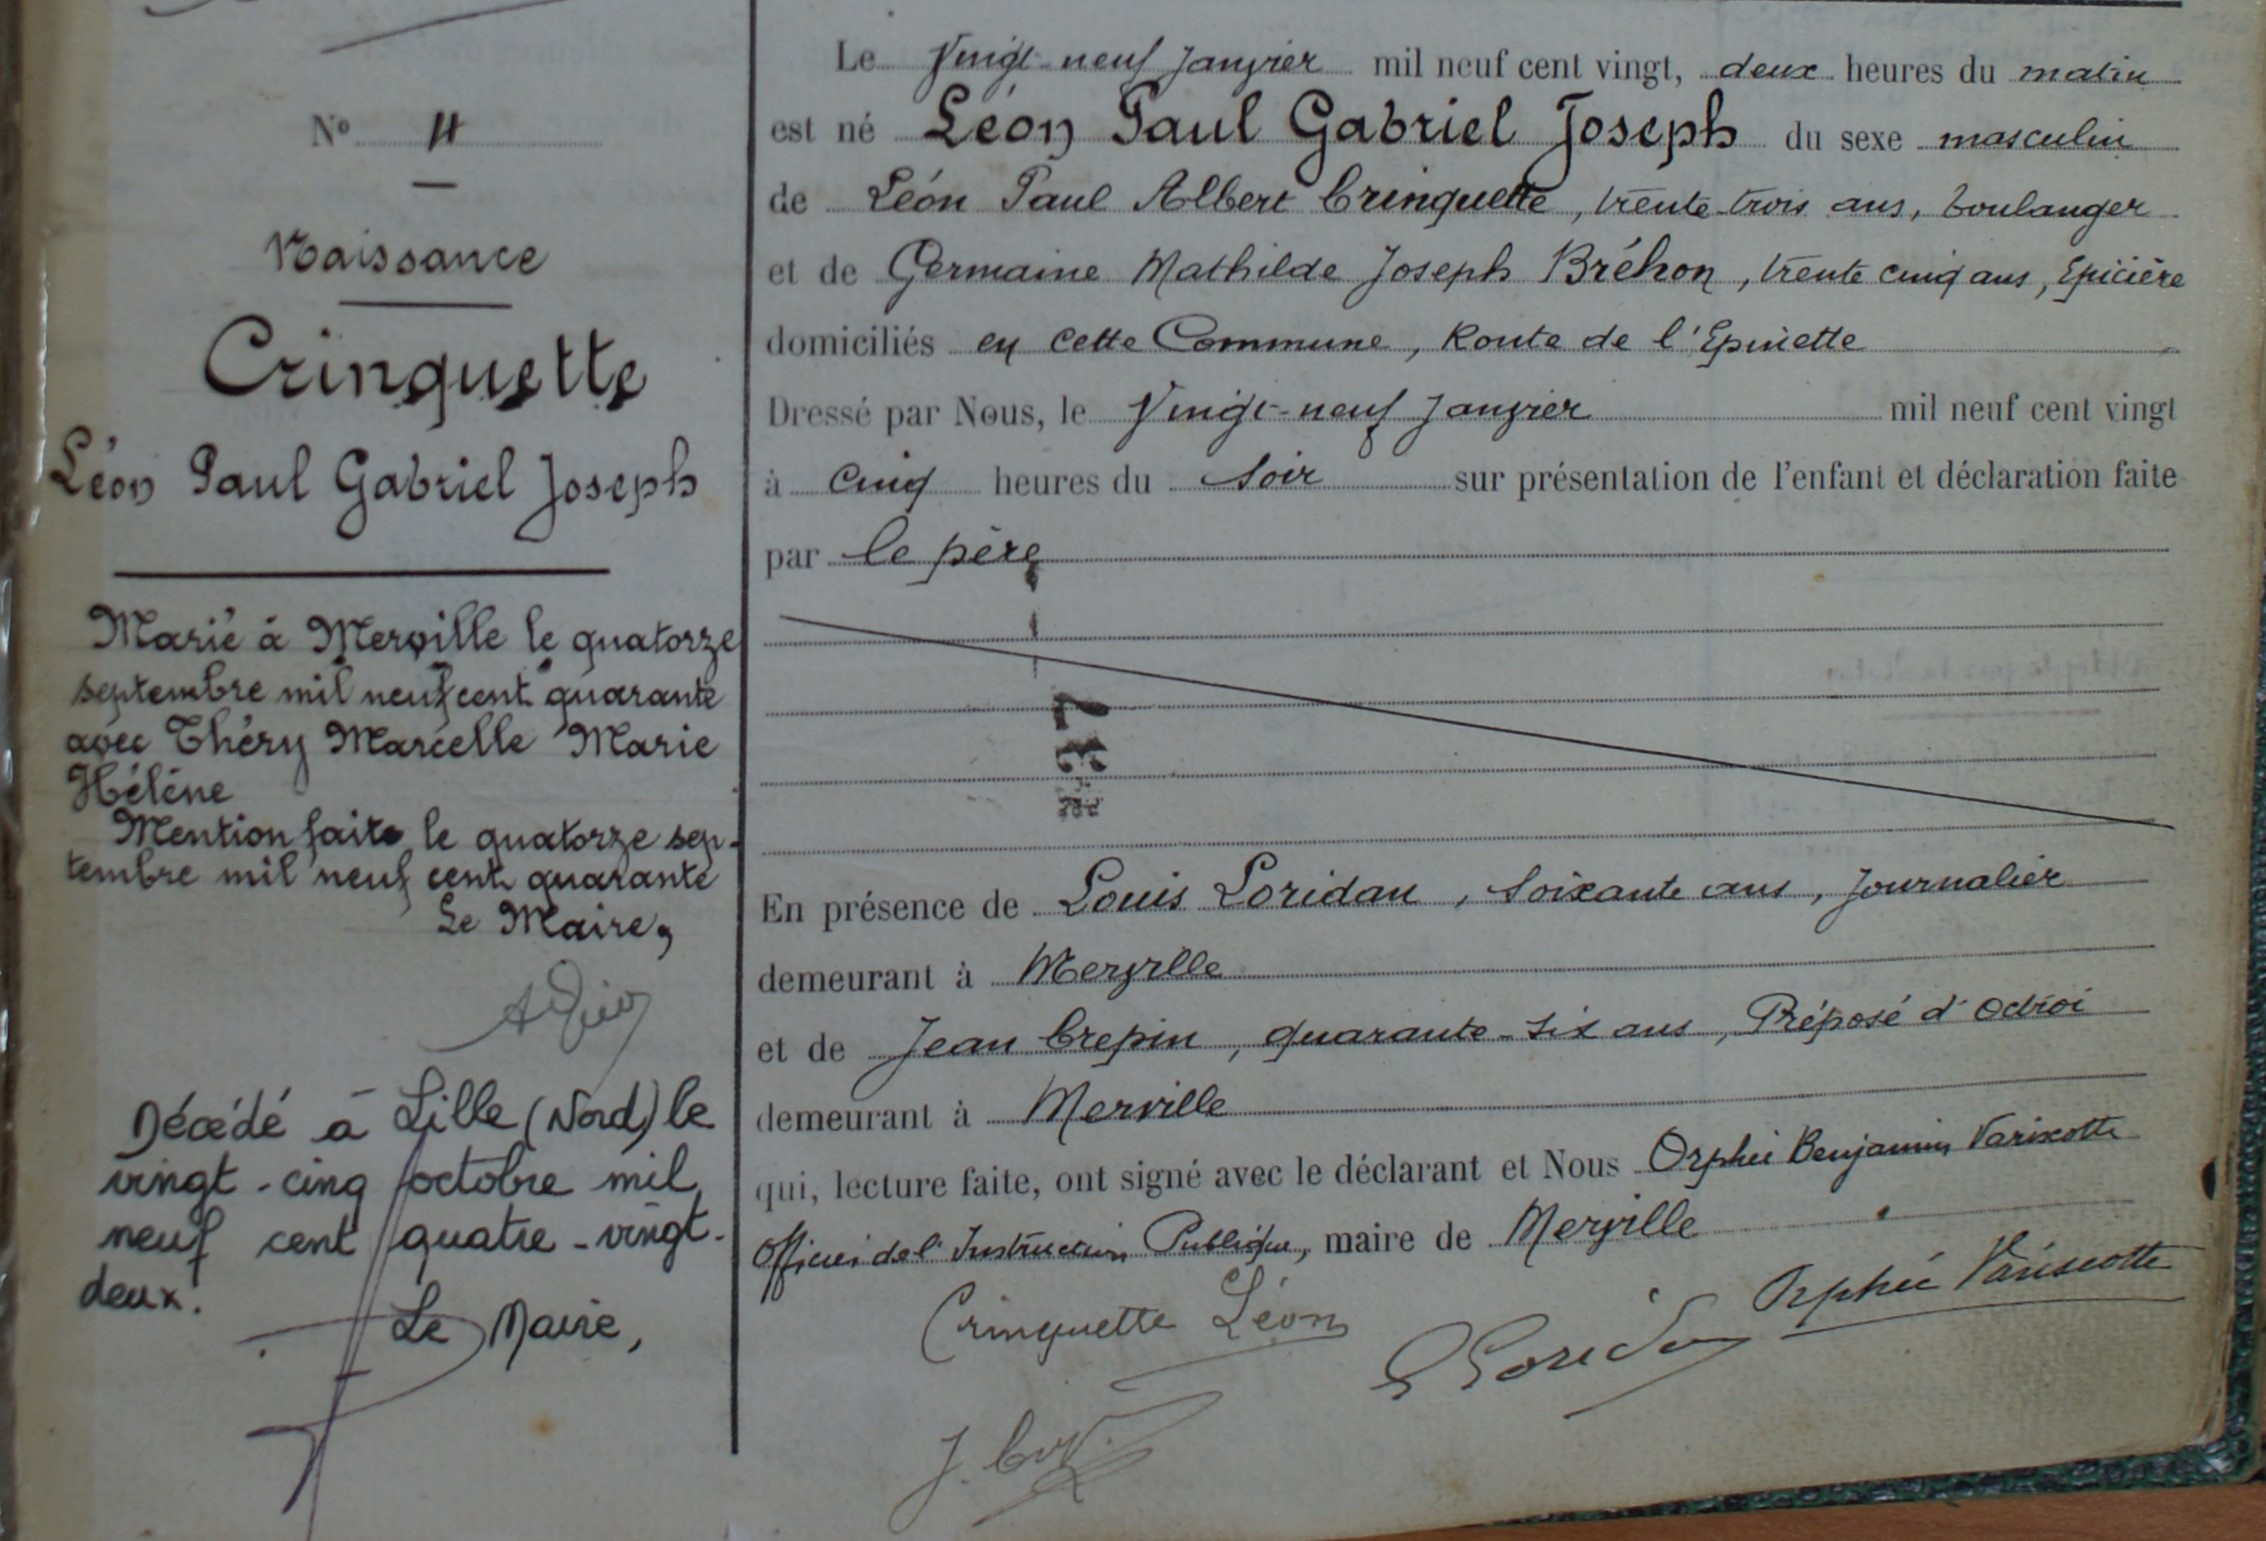 N° 11
Naissance
Crinquette
Léon Paul Gabriel Joseph
Marié à Merville le quatorze
septembre mil neuf cent quarante
avec Théry Marcelle Marie
Hélène
Mention faite le quatorze sep-
tembre mil neuf cent quarante
Le Maire,
Décédé à Lille (Nord) le
vingt-cinq octobre mil
neuf cent quatre-vingt-
deux.
Le Maire,
Le Vingt-neuf Janvier mil neuf cent vingt, deux heures du matin
est né Léon Paul Gabriel Joseph du sexe masculin
de Léon Paul Albert Crinquette, trente-trois ans, boulanger
et de Germaine Mathilde Joseph Bréhon, trente cinq ans, Epicière
domiciliés en cette Commune, Route de l'Epinette
Dressé par Nous, le Vingt-neuf Janvier mil neuf cent vingt
à cinq heures du soir sur présentation de l'enfant et déclaration faite
par le père
37
En présence de Louis Loridan, soixante ans, Journalier
demeurant à Merville
et de Jean Crepin, quarante-six ans, Préposé d'octroi
demeurant à Merville
qui, lecture faite, ont signé avec le déclarant et Nous Orphée Benjamin Variscotte
Officier de l'Instruction Publique, maire de Merville
Crinquette Léon
Orphée Variscotte
L Loridan